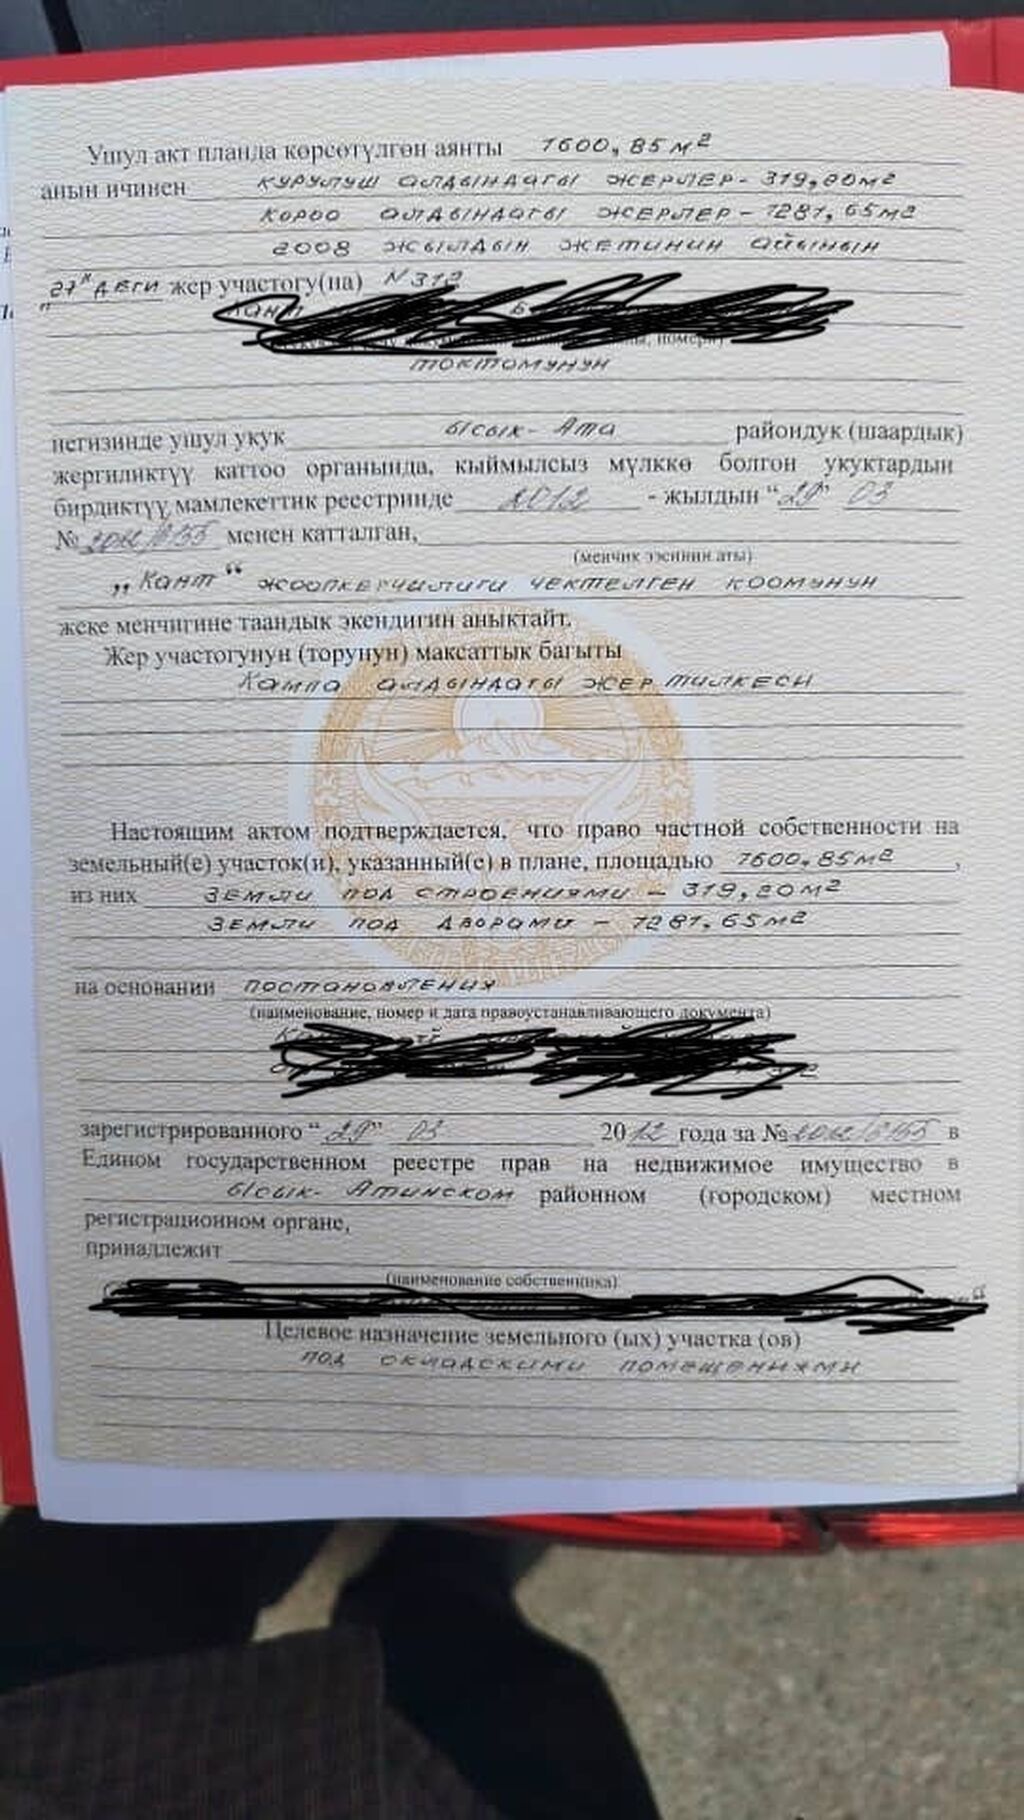 Ушул акт планда көрсөтүлгөн аянты 1600,85м²
анын ичинен курулуш алдындагы жерлер - 319,20м²
короо алдындагы жерлер - 1281,65м²
2008 жылдын жетинин айынын
"27" деги жер участогу(на) N312
токтомунун
негизинде ушул укук Ысык-Ата райондук (шаардык)
жергиликтүү каттоо органында, кыймылсыз мүлккө болгон укуктардын
бирдиктүү мамлекеттик реестринде 2012 - жылдын "29" 03
№ менен катталган,
(менчик ээсинин аты)
„Кант“ жоопкерчилиги чектелген коомунун
жеке менчигине таандык экендигин аныктайт.
Жер участогунун (торунун) максаттык багыты
Кампа алдындагы жер тилкеси
Настоящим актом подтверждается, что право частной собственности на
земельный(е) участок(и), указанный(е) в плане, площадью 1600,85м²,
из них земли под строениями - 319,20м²
земли под дворами - 1281,65м²
на основании постановления
(наименование, номер и дата правоустанавливающего документа)
зарегистрированного "29" 03 2012 года за № в
Едином государственном реестре прав на недвижимое имущество в
Ысык-Атинском районном (городском) местном
регистрационном органе,
принадлежит
(наименование собственника)
Целевое назначение земельного (ых) участка (ов)
под складскими помещениями